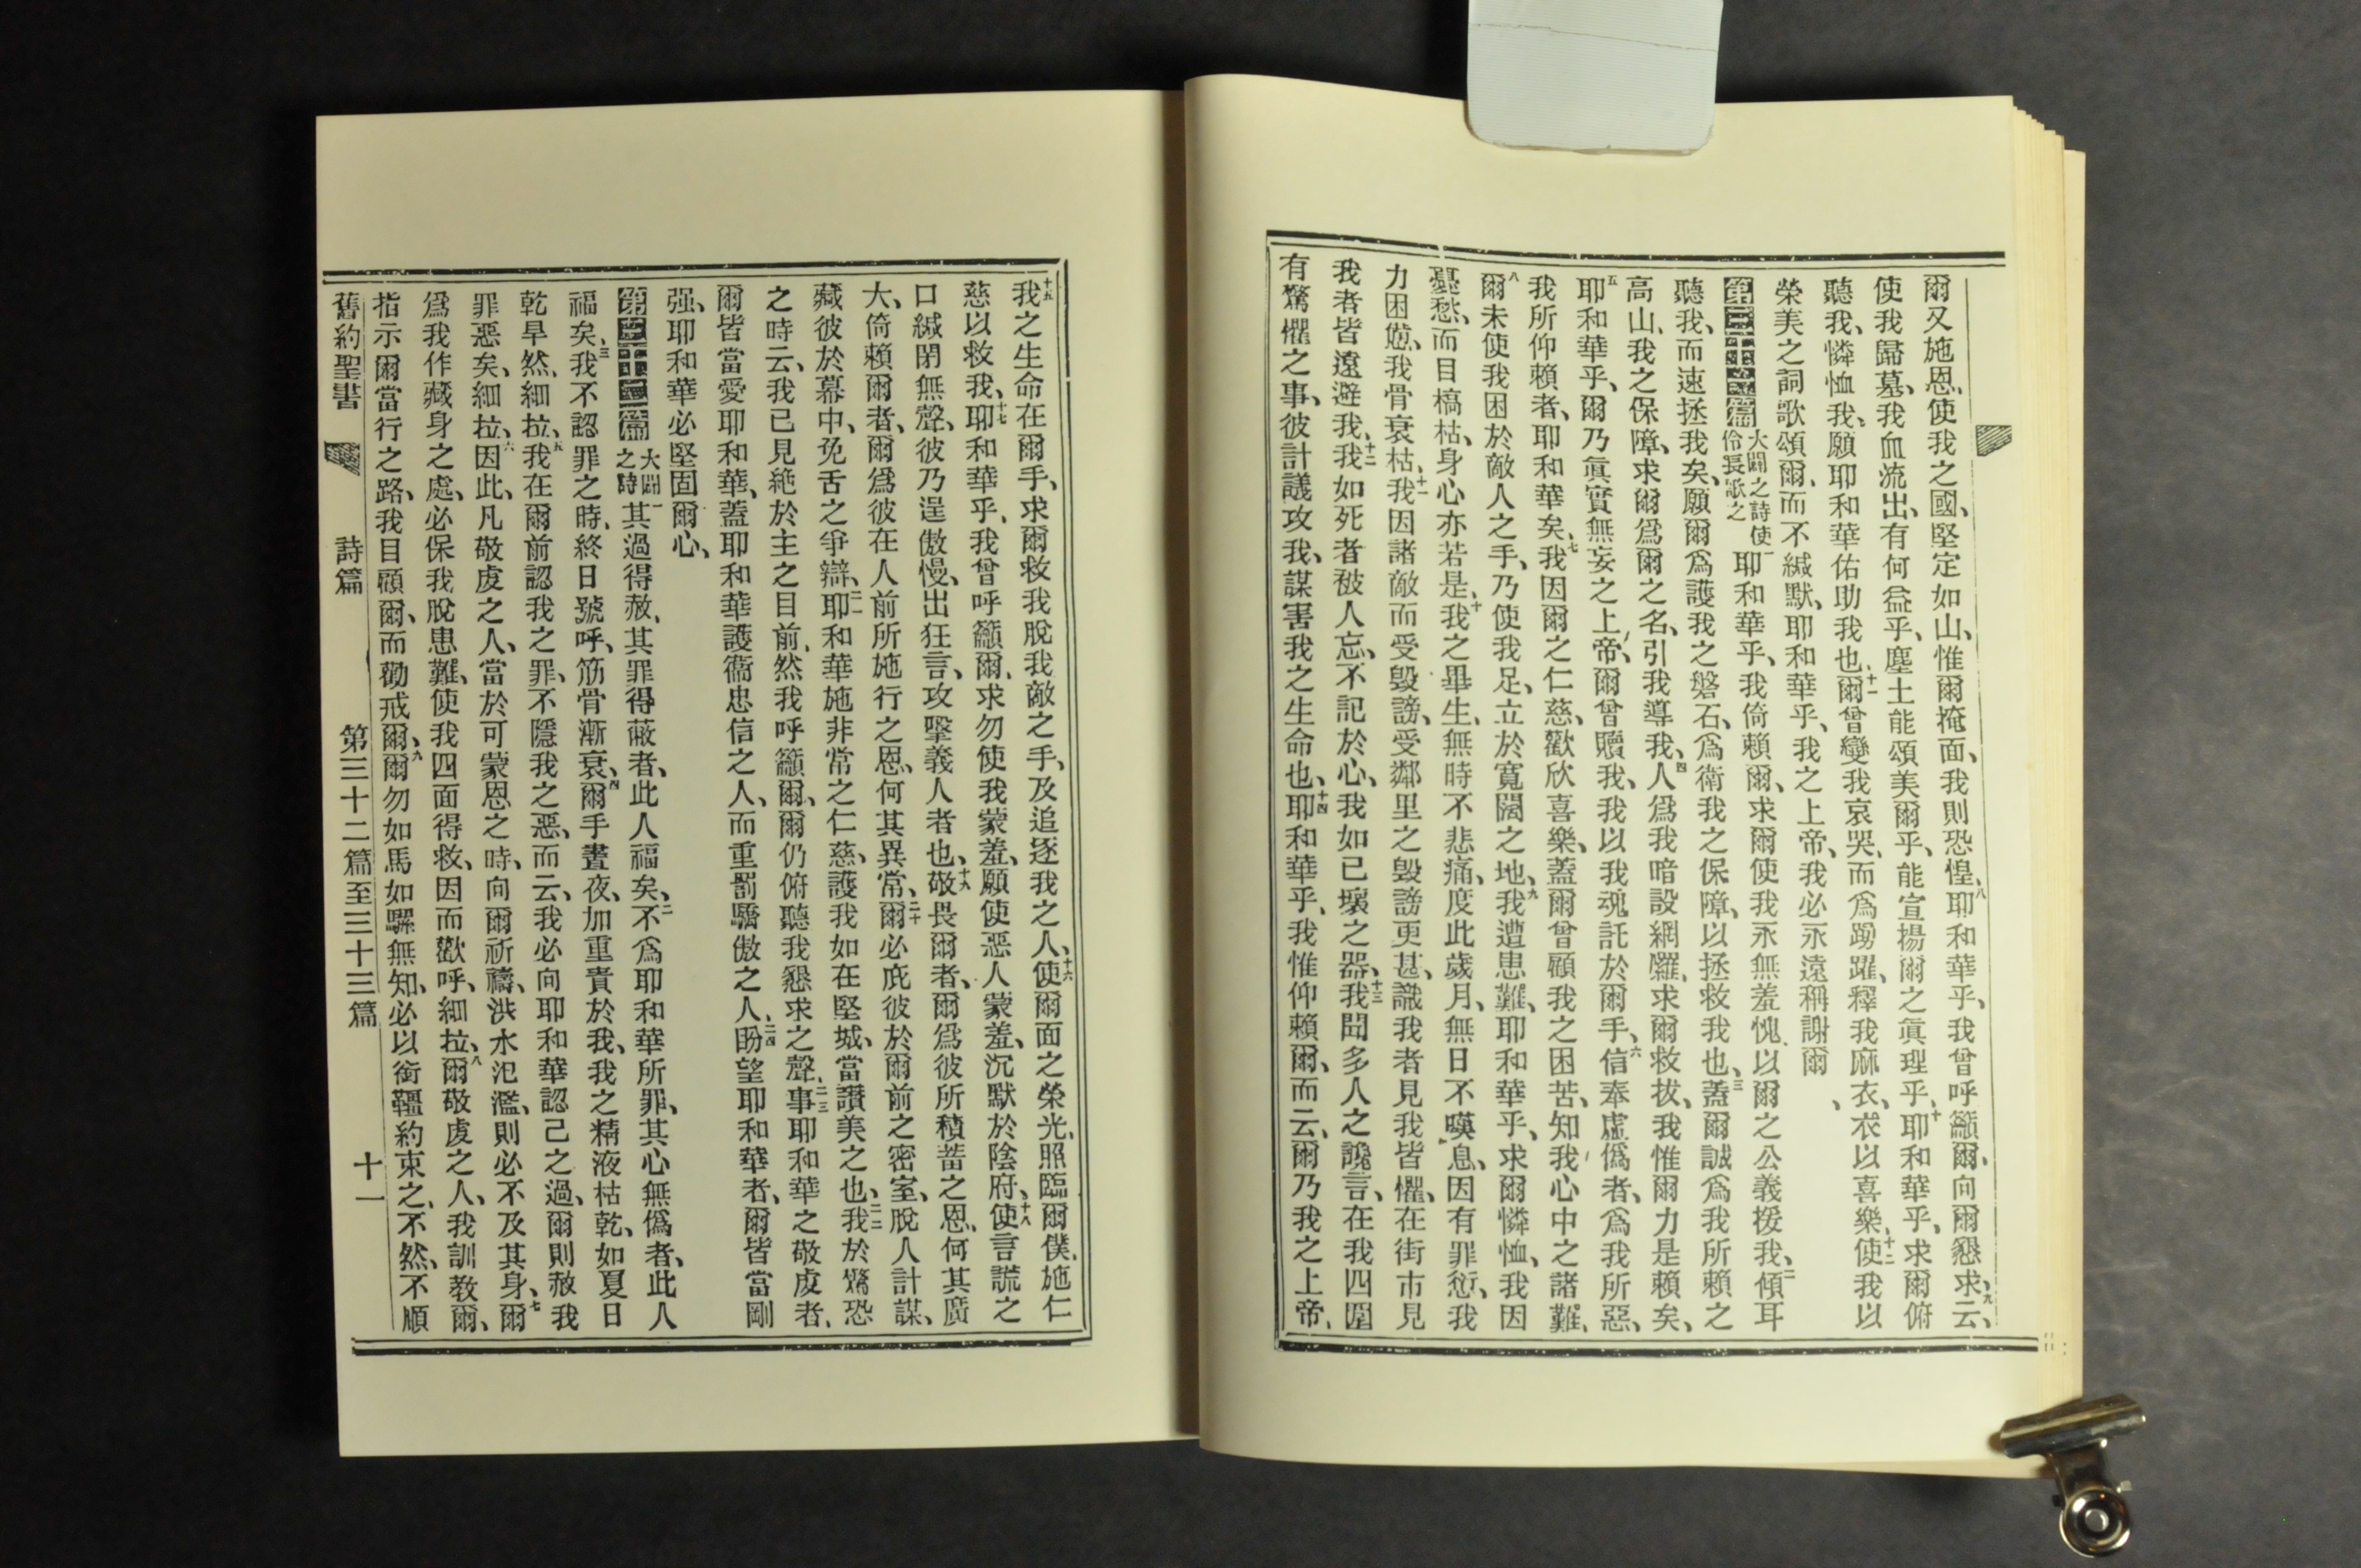 爾又施恩、使我之國、堅定如山、惟爾掩面、我則恐惶、八耶和華乎、我曾呼籲爾、向爾懇求、九云、
使我歸墓、我血流出、有何益乎、塵土能頌美爾乎、能宣揚爾之眞理乎、十耶和華乎、求爾俯
聽我、憐恤我、願耶和華佑助我也、十一爾曾變我哀哭、而爲踴躍、釋我麻衣、衣以喜樂、十二使我以
榮美之詞歌頌爾、而不緘默、耶和華乎、我之上帝、我必永遠稱謝爾、
第三十一篇 大闢之詩使伶長歌之 一耶和華乎、我倚賴爾、求爾使我永無羞愧、以爾之公義援我、二傾耳
聽我、而速拯我矣、願爾爲護我之磐石、爲衛我之保障、以拯救我也、三蓋爾誠爲我所賴之
高山、我之保障、求爾爲爾之名、引我導我、四人爲我暗設網羅、求爾救拔、我惟爾力是賴矣、
五耶和華乎、爾乃眞實無妄之上帝、爾曾贖我、我以我魂託於爾手、六信奉虛僞者、爲我所惡、
我所仰賴者、耶和華矣、七我因爾之仁慈、歡欣喜樂、蓋爾曾顧我之困苦、知我心中之諸難、
八爾未使我困於敵人之手、乃使我足、立於寬闊之地、九我遭患難、耶和華乎、求爾憐恤、我因
憂愁、而目槁枯、身心亦若是、十我之畢生、無時不悲痛、度此歲月、無日不嘆息、因有罪愆、我
力困憊、我骨衰枯、十一我因諸敵而受毀謗、受鄰里之毀謗更甚、識我者見我皆懼、在街市見
我者皆遠避我、十二我如死者被人忘、不記於心、我如已壞之器、十三我聞多人之讒言、在我四圍
有驚懼之事、彼計議攻我、謀害我之生命也、十四耶和華乎、我惟仰賴爾、而云、爾乃我之上帝、
十五我之生命在爾手、求爾救我脫我敵之手、及追逐我之人、十六使爾面之榮光、照臨爾僕、施仁
慈以救我、十七耶和華乎、我曾呼籲爾、求勿使我蒙羞、願使惡人蒙羞、沉默於陰府、十八使言謊之
口緘閉無聲、彼乃逞傲慢、出狂言、攻擊義人者也、十九敬畏爾者、爾爲彼所積蓄之恩、何其廣
大、倚賴爾者、爾爲彼在人前所施行之恩、何其異常、二十爾必庇彼於爾前之密室、脫人計謀、
藏彼於幕中、免舌之爭辯、二一耶和華施非常之仁慈、護我如在堅城、當讚美之也、二二我於驚恐
之時云、我已見絕於主之目前、然我呼籲爾、爾仍俯聽我懇求之聲、二三事耶和華之敬虔者、
爾皆當愛耶和華、蓋耶和華護衞忠信之人、而重罰驕傲之人、二四盼望耶和華者、爾皆當剛
强、耶和華必堅固爾心、
第三十二篇 大闢之詩 一其過得赦、其罪得蔽者、此人福矣、二不爲耶和華所罪、其心無僞者、此人
福矣、三我不認罪之時、終日號呼、筋骨漸衰、四爾手晝夜、加重責於我、我之精液枯乾、如夏日
乾旱然、細拉、五我在爾前認我之罪、不隱我之惡、而云、我必向耶和華認己之過、爾則赦我
罪惡矣、細拉、六因此、凡敬虔之人、當於可蒙恩之時、向爾祈禱、洪水氾濫、則必不及其身、七爾
爲我作藏身之處、必保我脫患難、使我四面得救、因而歡呼、細拉、八爾敬虔之人、我訓教爾、
指示爾當行之路、我目顧爾、而勸戒爾、九爾勿如馬如騾無知、必以銜韁約束之、不然、不順
舊約聖書 詩篇 第三十二篇至三十三篇 十一